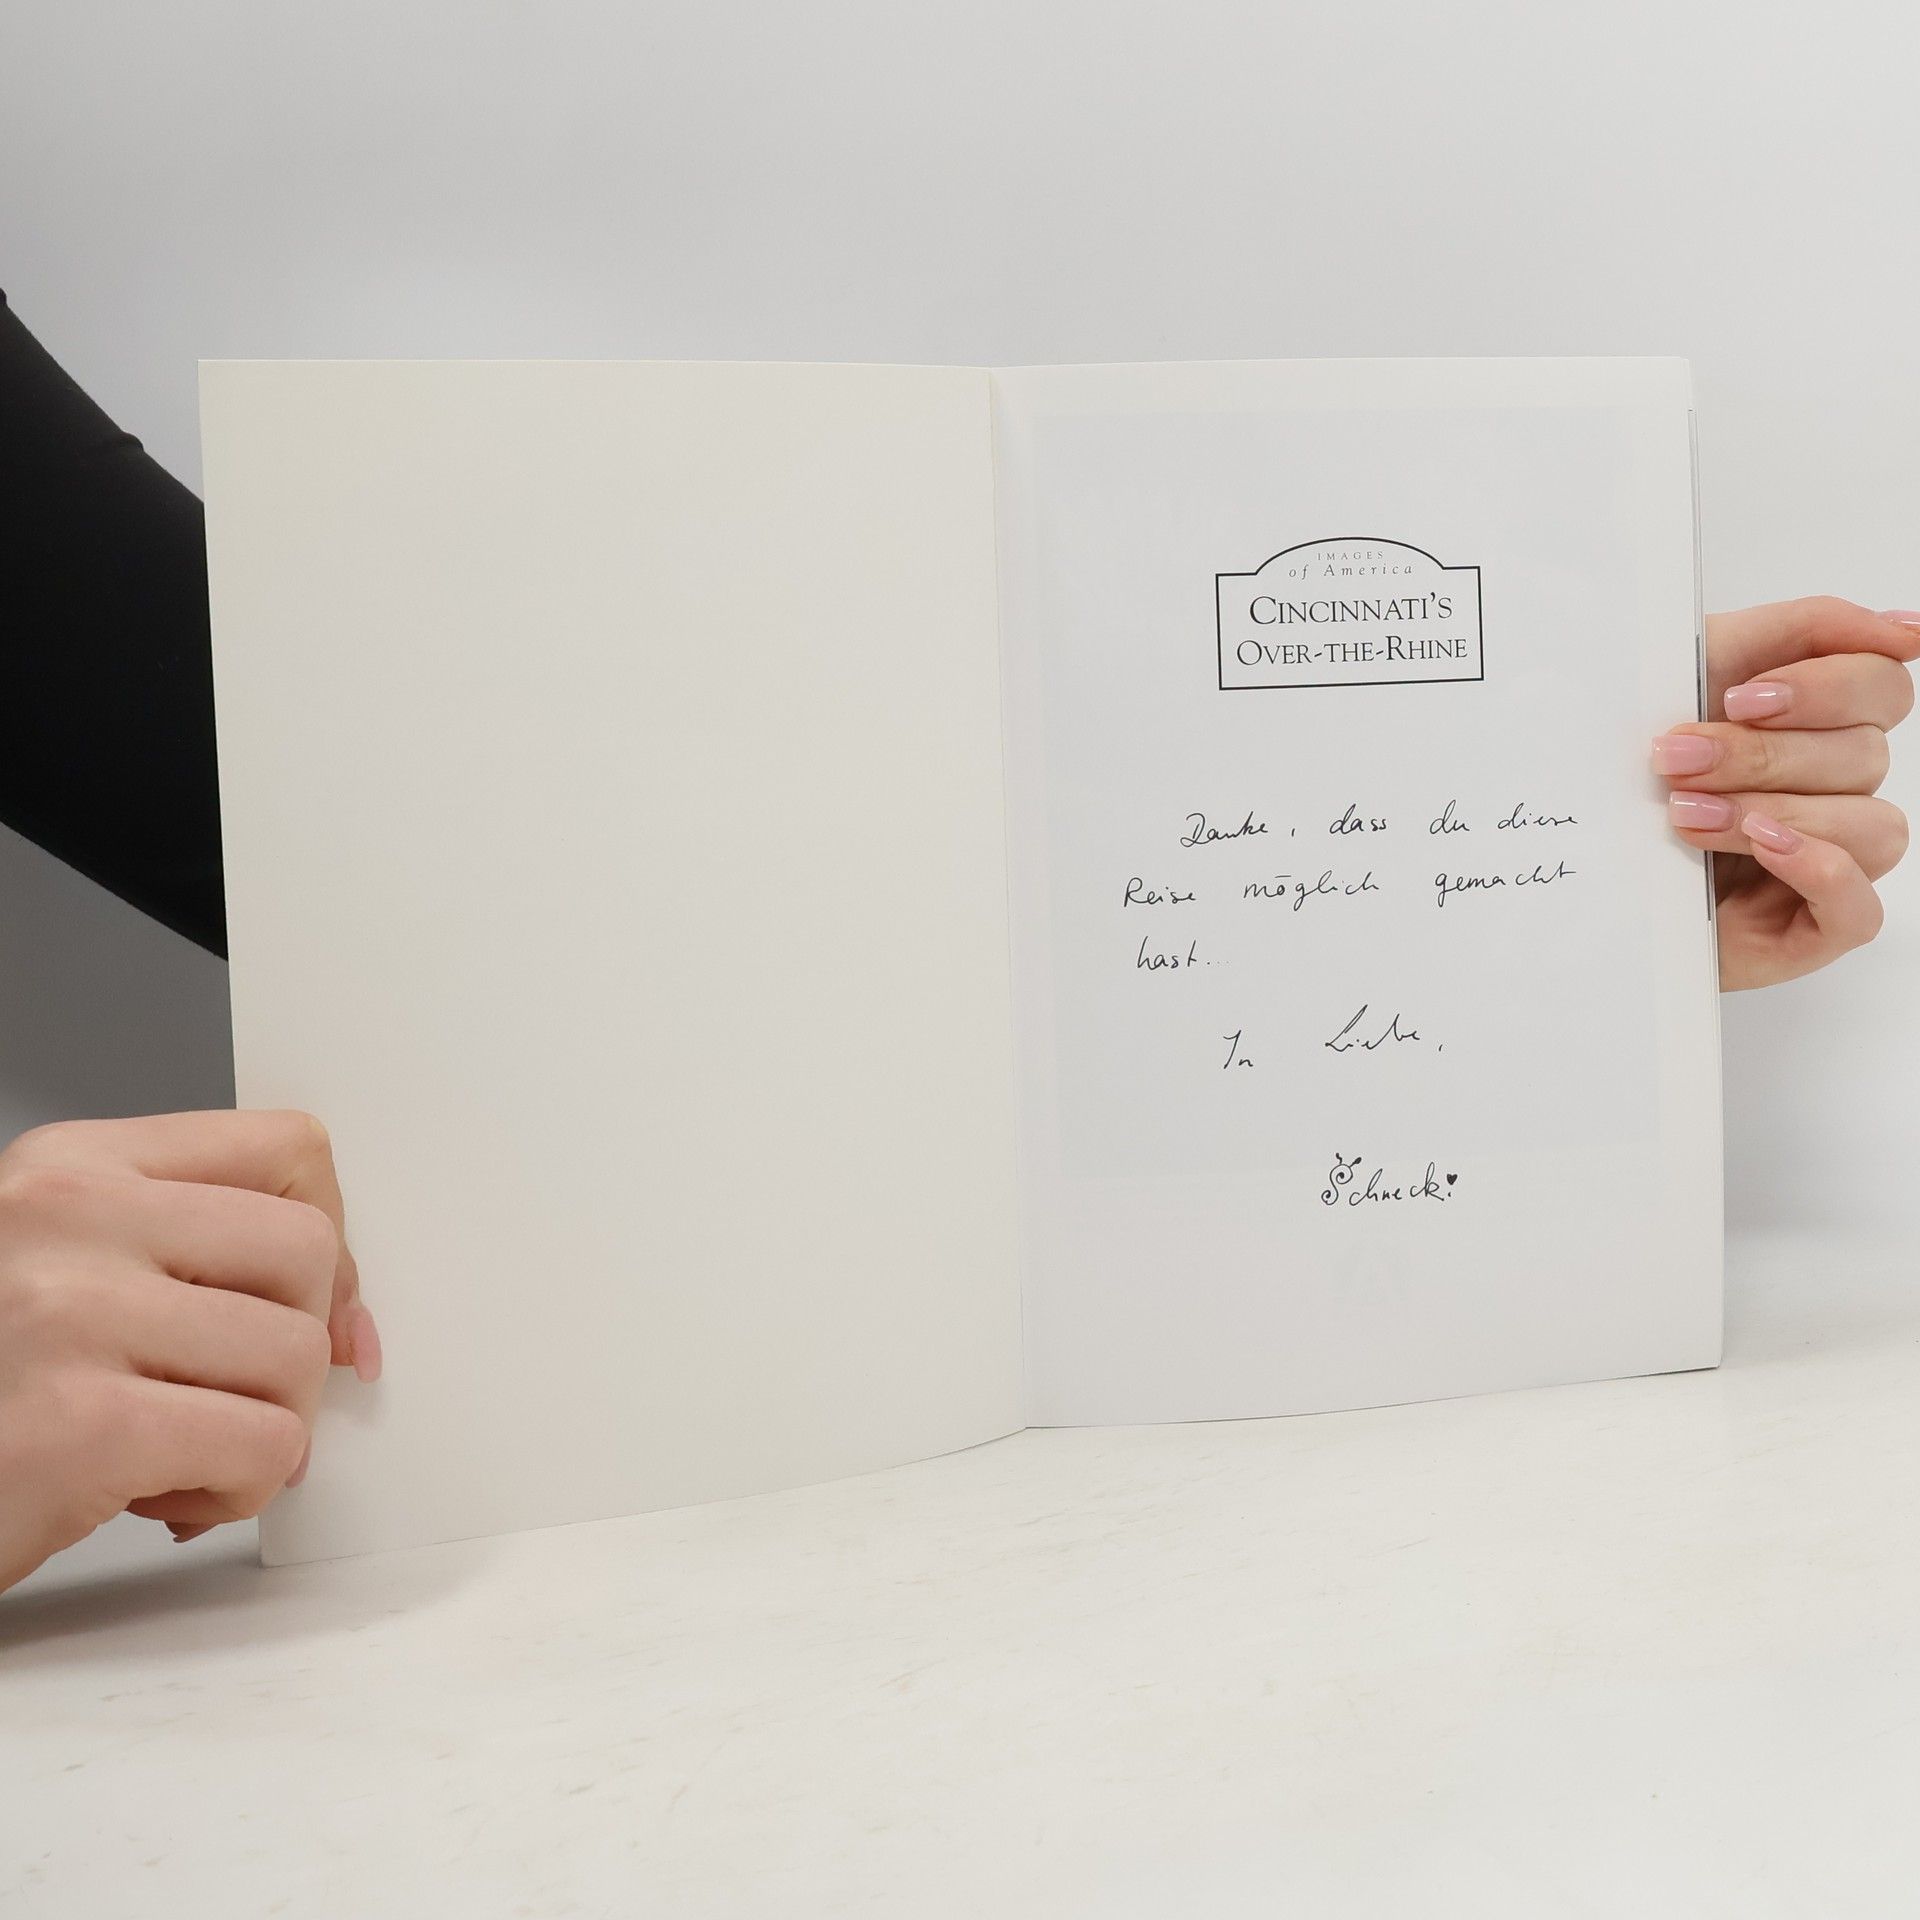 IMAGES
of America
CINCINNATI'S
OVER-THE-RHINE
Danke, dass du diese
Reise möglich gemacht
hast...
In Liebe,
Schneck